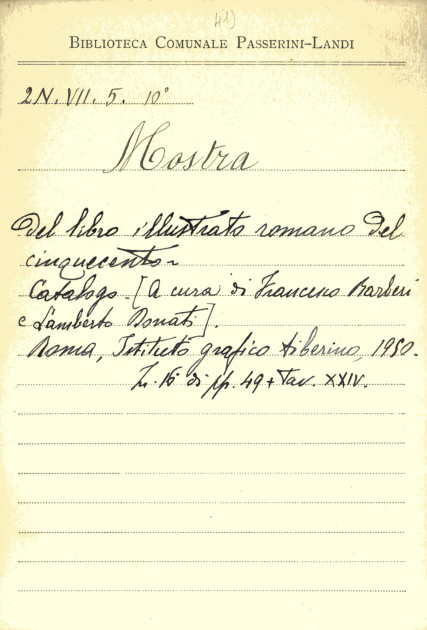 41)
BIBLIOTECA COMUNALE PASSERINI-LANDI
2N. VII. 5. 10°
Mostra
del libro illustrato romano del
cinquecento -
Catalogo. [A cura di Francesco Barberi
e Lamberto Donati].
Roma, Istituto grafico tiberino, 1950.
In-16 di pp. 49 + Tav. XXIV.